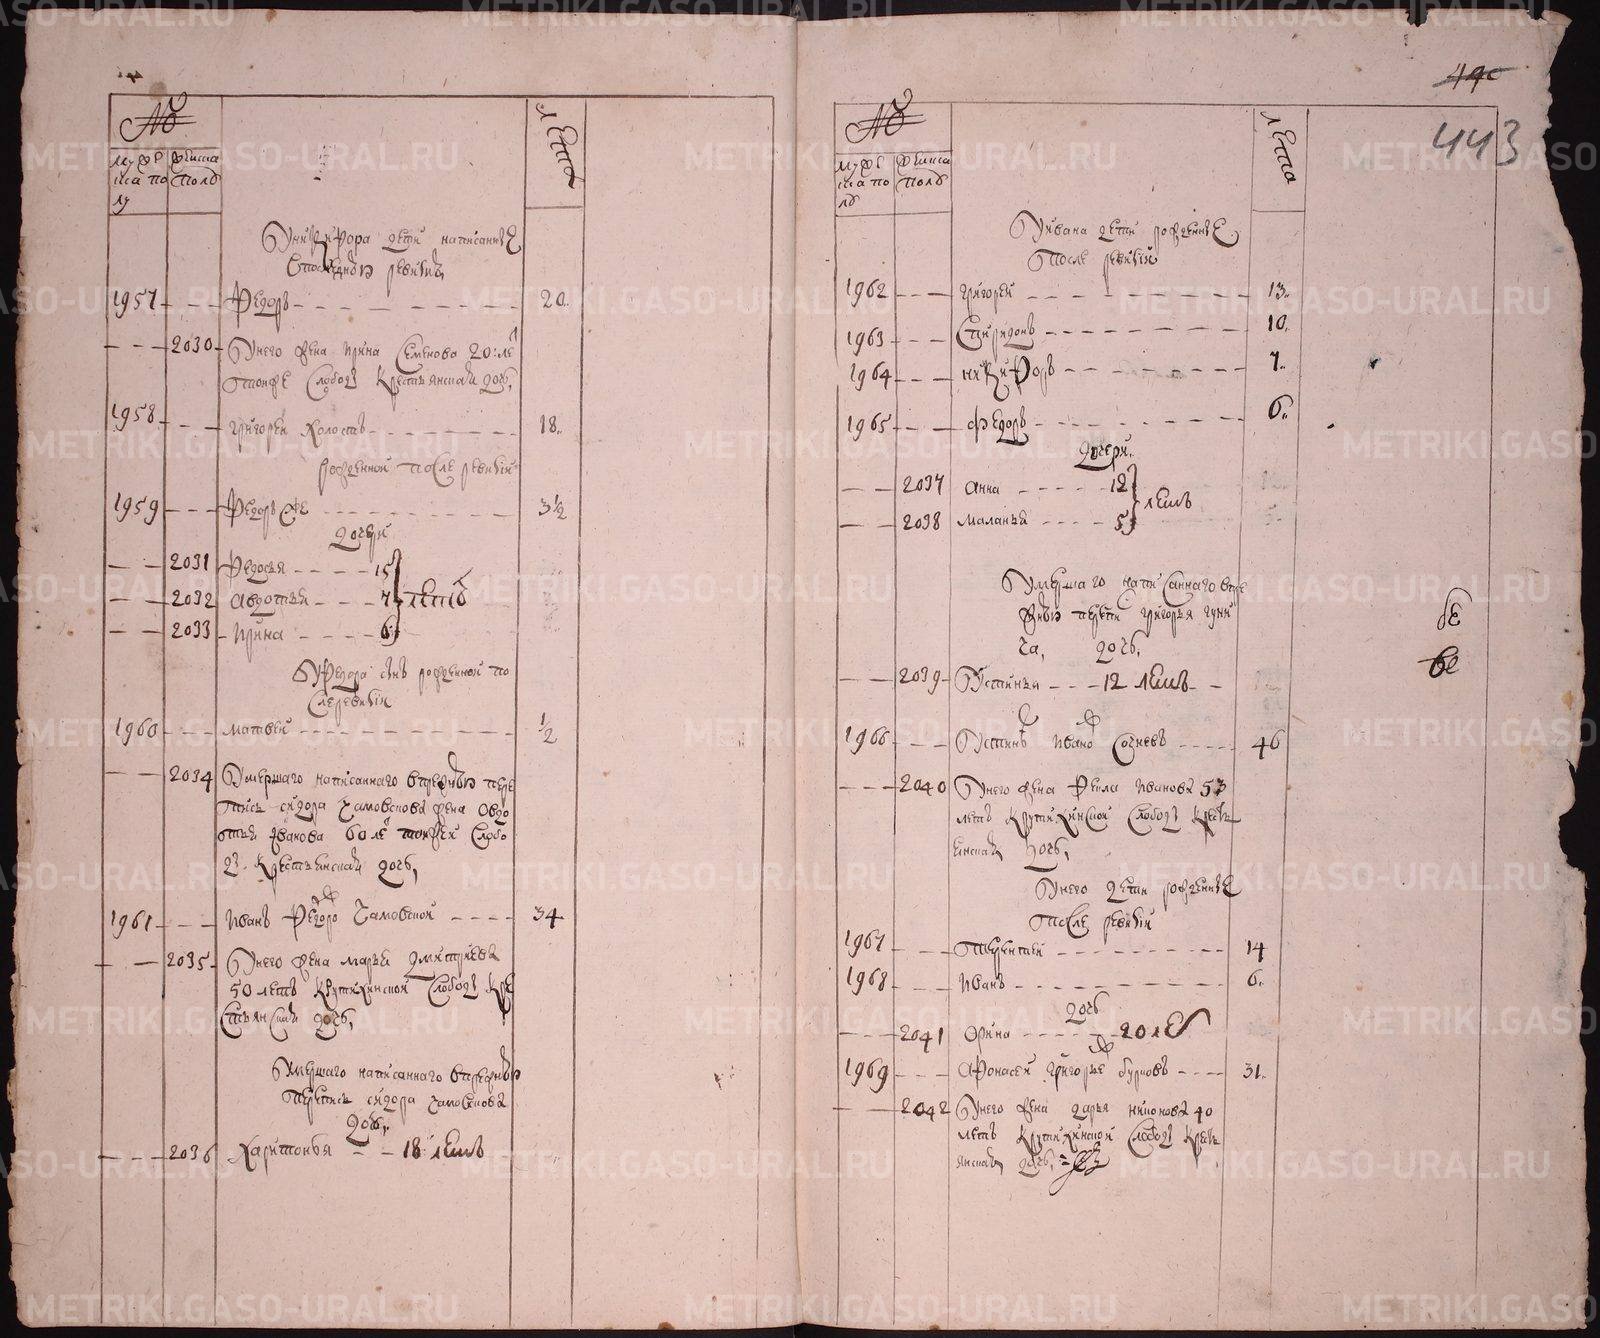 №
мужеска полу
женска полъ
лета
У никифора дети написанные
в последнюю ревизию
1957 Федоръ 20
2030 У него жена ирина Семенова 20: ле
тоя же Слободы крестьянская дочь,
1958 григорей холостъ 18
рожденной после ревизии
1959 Федоръ же 3½
дочери
2031 Федосья 15
2032 авдотья 7 летъ
2033 ирина 6
У Федора сынъ рожденной по
сле ревизии
1960 матвей ½
2034 Умершаго написаннаго в прежнюю пере
пись сидора жена овдо
тья иванова 60 ле тоя же Слобо
ды крестьянская дочь,
1961 иванъ Федоро 34
2035 У него жена марья дмитриева
50 летъ крутихинской Слободы кре
стьянская дочь,
Умершаго написаннаго в прежнюю
перепись сидора
дочь,
2036 харитонья 18 летъ
443
№
мужеска полъ
женска полъ
лета
У ивана дети рожденные
после ревизии
1962 григорей 13
1963 Спиридонъ 10
1964 никифоръ 7
1965 федоръ 6
дочери
2037 анна 12
летъ
2038 маланья 5
Умершаго написаннаго в пре
жнюю перепи григорья
дочь,
2039 Устинья 12 летъ
1966 Устинъ ивано 46
2040 У него жена Фекла иванова 53
летъ крутихинской Слободы кресть
янская дочь,
У него дети рожденные
после ревизии
1967 терентей 14
1968 иванъ 6
дочь
2041 орина 20 ле
1969 афонасей григорье 31
2042 У него жена дарья 40
летъ крутихинской Слободы кресть
янская дочь,